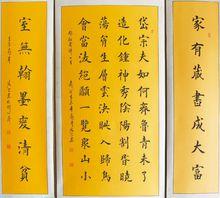 家有藏書成大富
岱宗夫如何齊魯青未了
造化鍾神秀陰陽割昏曉
蕩胸生層雲決眥入歸鳥
會當凌絕頂一覽衆山小
室無翰墨清貧